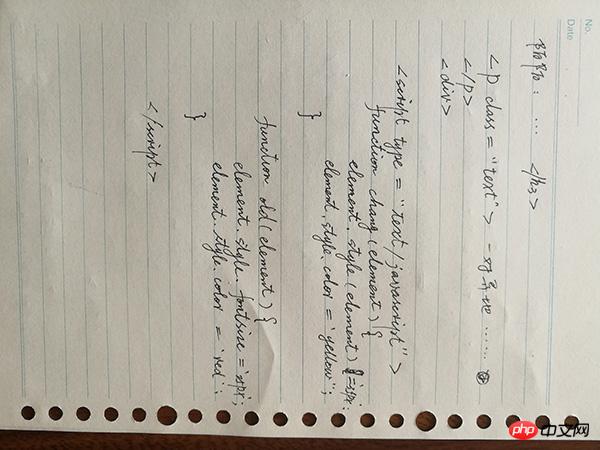 No.
Date
: ... </h3>
<p class = "text"> 一对 ......
</p>
<div>
<script type = "text/javascript">
function chang(element) {
element.style(element)
element.style.color = 'yellow';
}
function old(element) {
element.style.fontsize =
element.style.color = 'red';
}
</script>
php 中文网